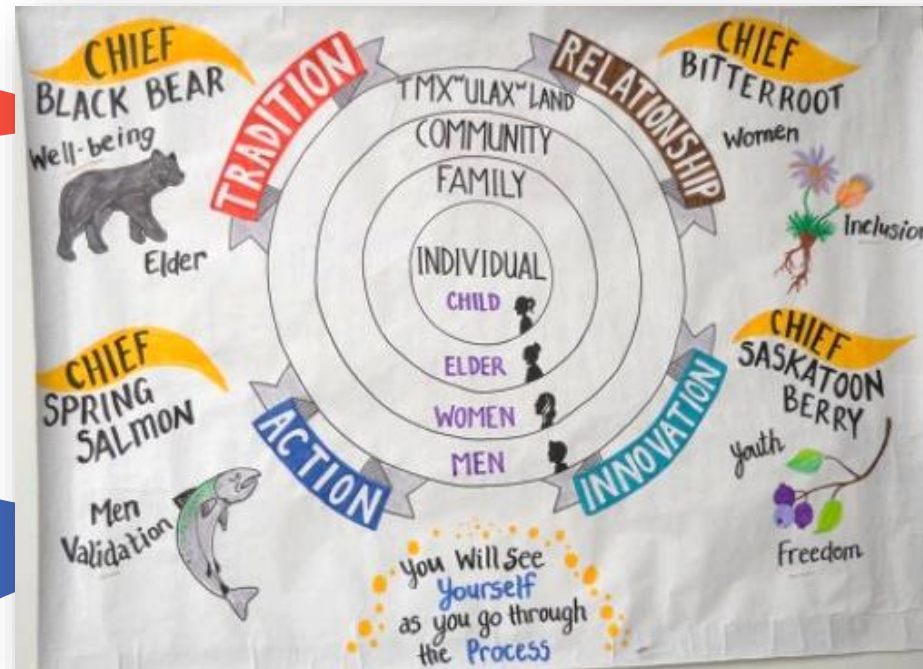 CHIEF
BLACK BEAR
Well-being
Elder
TRADITION
RELATIONSHIP
CHIEF
BITTERROOT
Women
Inclusion
TMXʷULAXʷ LAND
COMMUNITY
FAMILY
INDIVIDUAL
CHILD
ELDER
WOMEN
MEN
CHIEF
SPRING
SALMON
Men
Validation
ACTION
INNOVATION
CHIEF
SASKATOON
BERRY
Youth
Freedom
You Will See
Yourself
as you go through
the Process